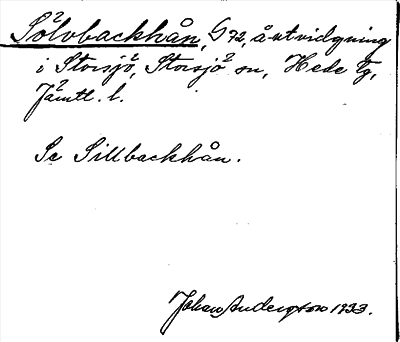 Sölvbackhån, G 72, å-utvidgning
i Storsjö, Storsjö sn, Hede tg,
Jämtl. l.
Se Sillbackhån.
Johan Andersson 1933.